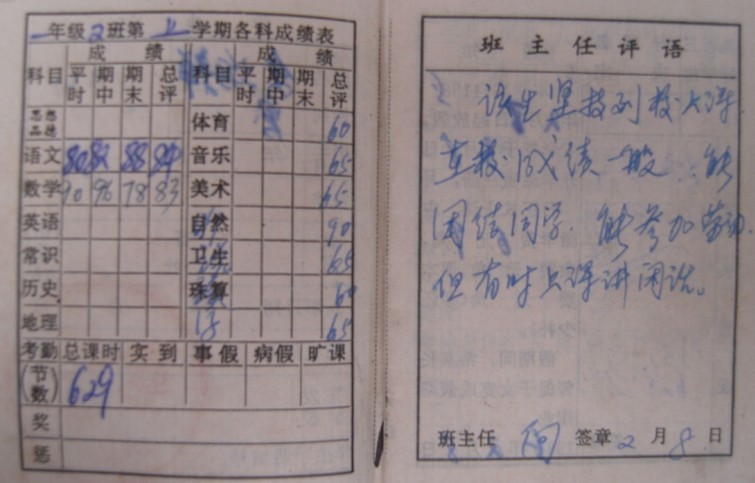 一年级2班第上学期各科成绩表
科目 成绩 科目 成绩
平时 期中 期末 总评 平时 期中 期末 总评
思想品德 体育 60
语文 80 82 88 84 音乐 65
数学 90 96 78 83 美术 65
英语 自然 90
常识 卫生 65
历史 珠算 60
地理 65
考勤 总课时 实到 事假 病假 旷课
(节数) 629
奖
惩
班主任评语
该生坚持到校上课
在校成绩一般,能
团结同学,能参加劳动,
但有时上课讲闲话。
班主任 签章 2月8日